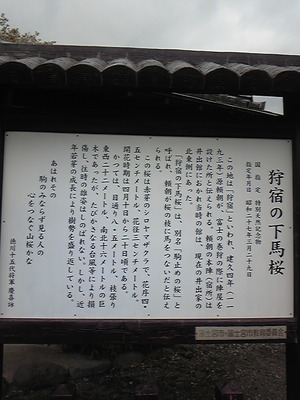 狩宿の下馬桜
国指定 特別天然記念物
指定年月日 昭和二十七年三月二十九日
この地は「狩宿」といわれ、建久四年(一一
九三年)源頼朝が、富士の巻狩の際に陣屋を
設けた所と伝えられる。頼朝の本陣(宿所)は
井出館におかれ当時の館は、現在の井出家の
北東側にあった。
「狩宿の下馬桜」は、別名「駒止めの桜」と
呼ばれ、頼朝が桜の枝に馬をつないだと伝え
られる。
この桜は赤芽のシロヤマザクラで、花序四・
五センチメートル、花径三センチメートル、
開花時期は四月十日から二十日頃である。
かつては、目通り八・五十メートル、枝張り
東西二十二メートル、南北十六メートルの巨
木であったが、たびかさなる台風等により損
傷し往時の雄姿はしのばれない。しかし、近
年若芽の成長により樹勢を盛り返している。
あはれその
駒のみならず見る人の
心をつなぐ山桜かな
徳川十五代将軍慶喜詠
富士宮市・富士宮市教育委員会